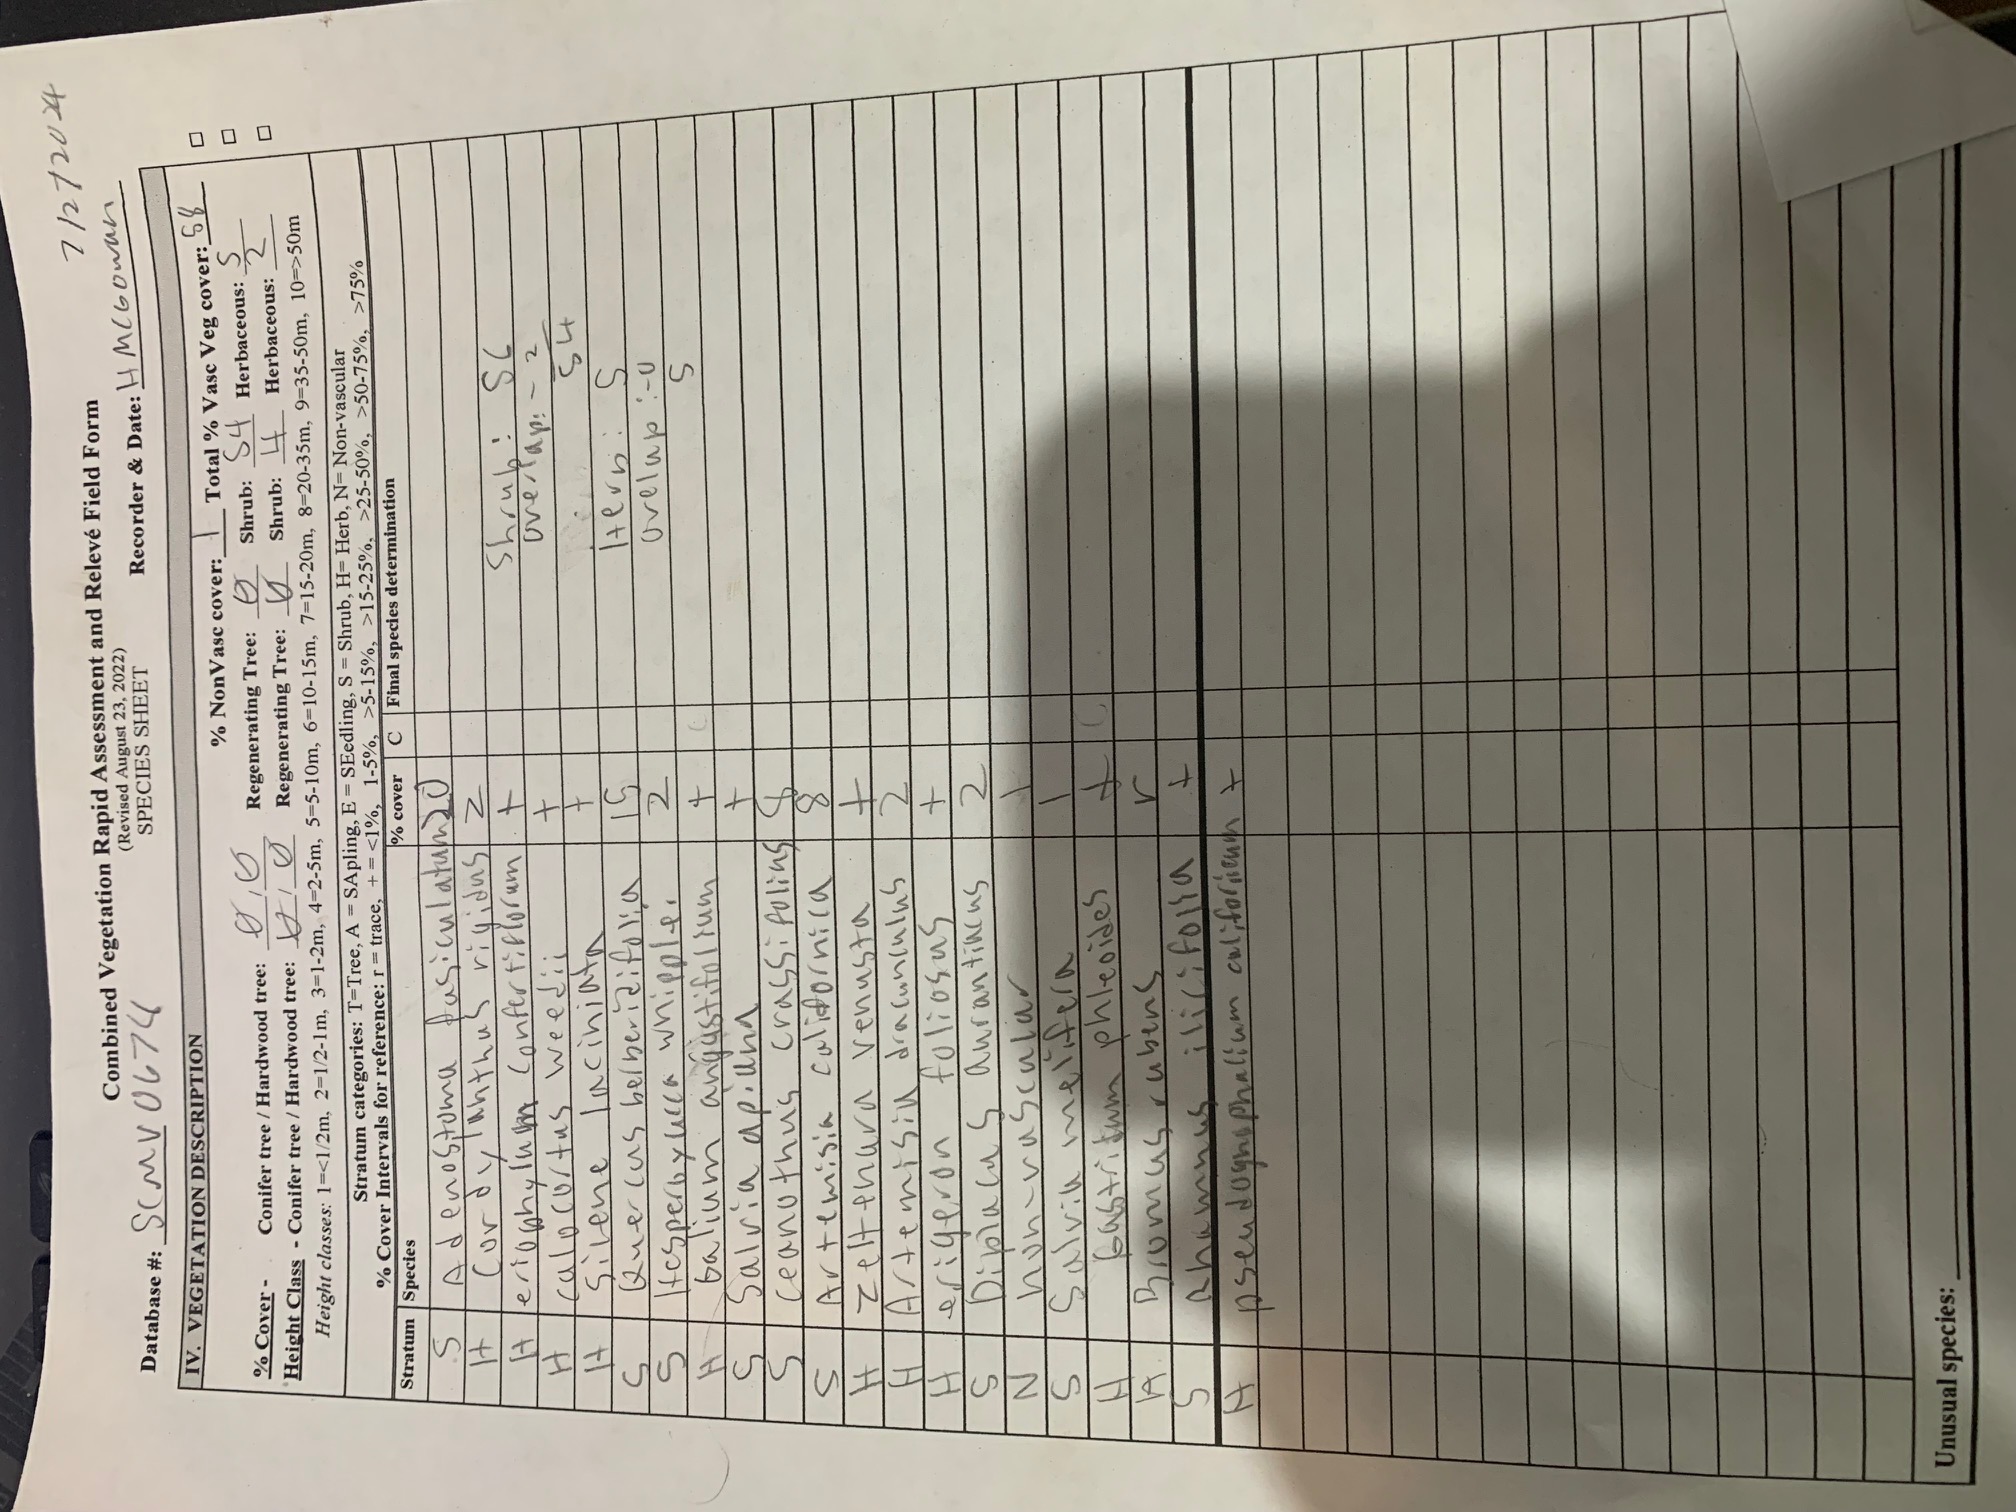 7/27/2024
Combined Vegetation Rapid Assessment and Relevé Field Form
(Revised August 23, 2022)
Database #: SCMV0674 SPECIES SHEET Recorder & Date: H MCGowan
IV. VEGETATION DESCRIPTION
% NonVasc cover: 1 Total % Vasc Veg cover: 58 □
% Cover - Conifer tree / Hardwood tree: Ø / Ø Regenerating Tree: Ø Shrub: 54 Herbaceous: 5 □
Height Class - Conifer tree / Hardwood tree: Ø / Ø Regenerating Tree: Ø Shrub: 4 Herbaceous: 2 □
Height classes: 1=<1/2m, 2=1/2-1m, 3=1-2m, 4=2-5m, 5=5-10m, 6=10-15m, 7=15-20m, 8=20-35m, 9=35-50m, 10=>50m
Stratum categories: T=Tree, A = SApling, E = SEedling, S = Shrub, H= Herb, N= Non-vascular
% Cover Intervals for reference: r = trace, + = <1%, 1-5%, >5-15%, >15-25%, >25-50%, >50-75%, >75%
Stratum Species % cover C Final species determination
S Adenostoma fasiculatum 20
H Cordylanthus rigidus 2
H eriophylum confertiflorum + Shrub: 56
H calocortus weedii + overlap: - 2
H Silene laciniata + 54
S Quercus belberidifolia 15 Herb: 5
S Hesperoyucca whipplei 2 ovelup: -0
H Galium angustifolium + C 5
S Salvia apiana +
S ceanothus crassifolius 8
S Artemisia californica 8
H Zeltenura venusta +
H Artemisia dracunculus 2
H erigeron foliosus +
S Diplacus aurantiacus 2
N Non-vascular 1
S Salvia melifera 1
H Gastridum phleoides + C
H Bromus rubens r
S Rhamnus ilicifolia +
H pseudognaphalium califoricum +
Unusual species: